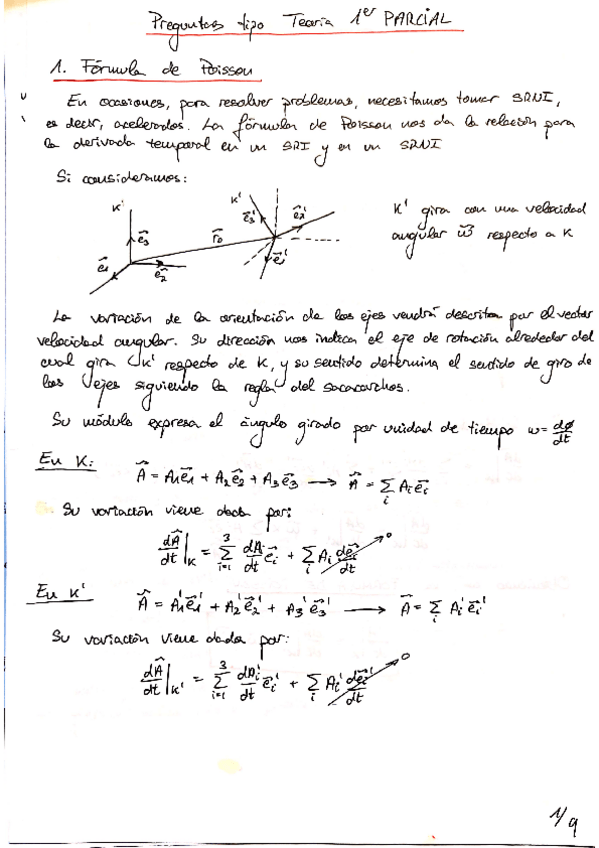 Preguntas tipo Teoría 1er PARCIAL
1. Fórmula de Poisson
En ocasiones, para resolver problemas, necesitamos tomar SRNI,
es decir, acelerados. La fórmula de Poisson nos da la relación para
la derivada temporal en un SRI y en un SRNI
Si consideramos:
K' e⃗3 e⃗1 e⃗2 r⃗0 K' e⃗3' e⃗2' e⃗1'
K' gira con una velocidad
angular ω⃗ respecto a K
La variación de la orientación de los ejes vendrá descrita por el vector
velocidad angular. Su dirección nos indica el eje de rotación alrededor del
cual gira K' respecto de K, y su sentido determina el sentido de giro de
los ejes siguiendo la regla del sacacorchos.
Su módulo expresa el ángulo girado por unidad de tiempo ω = dφ/dt
En K: A⃗ = A1e⃗1 + A2e⃗2 + A3e⃗3 → A⃗ = Σi Aie⃗i
Su variación viene dada por:
dA⃗/dt|K = Σ(i=1→3) dAi/dt e⃗i + Σi Ai de⃗i/dt → 0
En K' A⃗ = A1'e⃗1' + A2'e⃗2' + A3'e⃗3' → A⃗ = Σi Ai'e⃗i'
Su variación viene dada por:
dA⃗/dt|K' = Σ(i=1→3) dAi'/dt e⃗i' + Σi Ai' de⃗i'/dt → 0
1/9